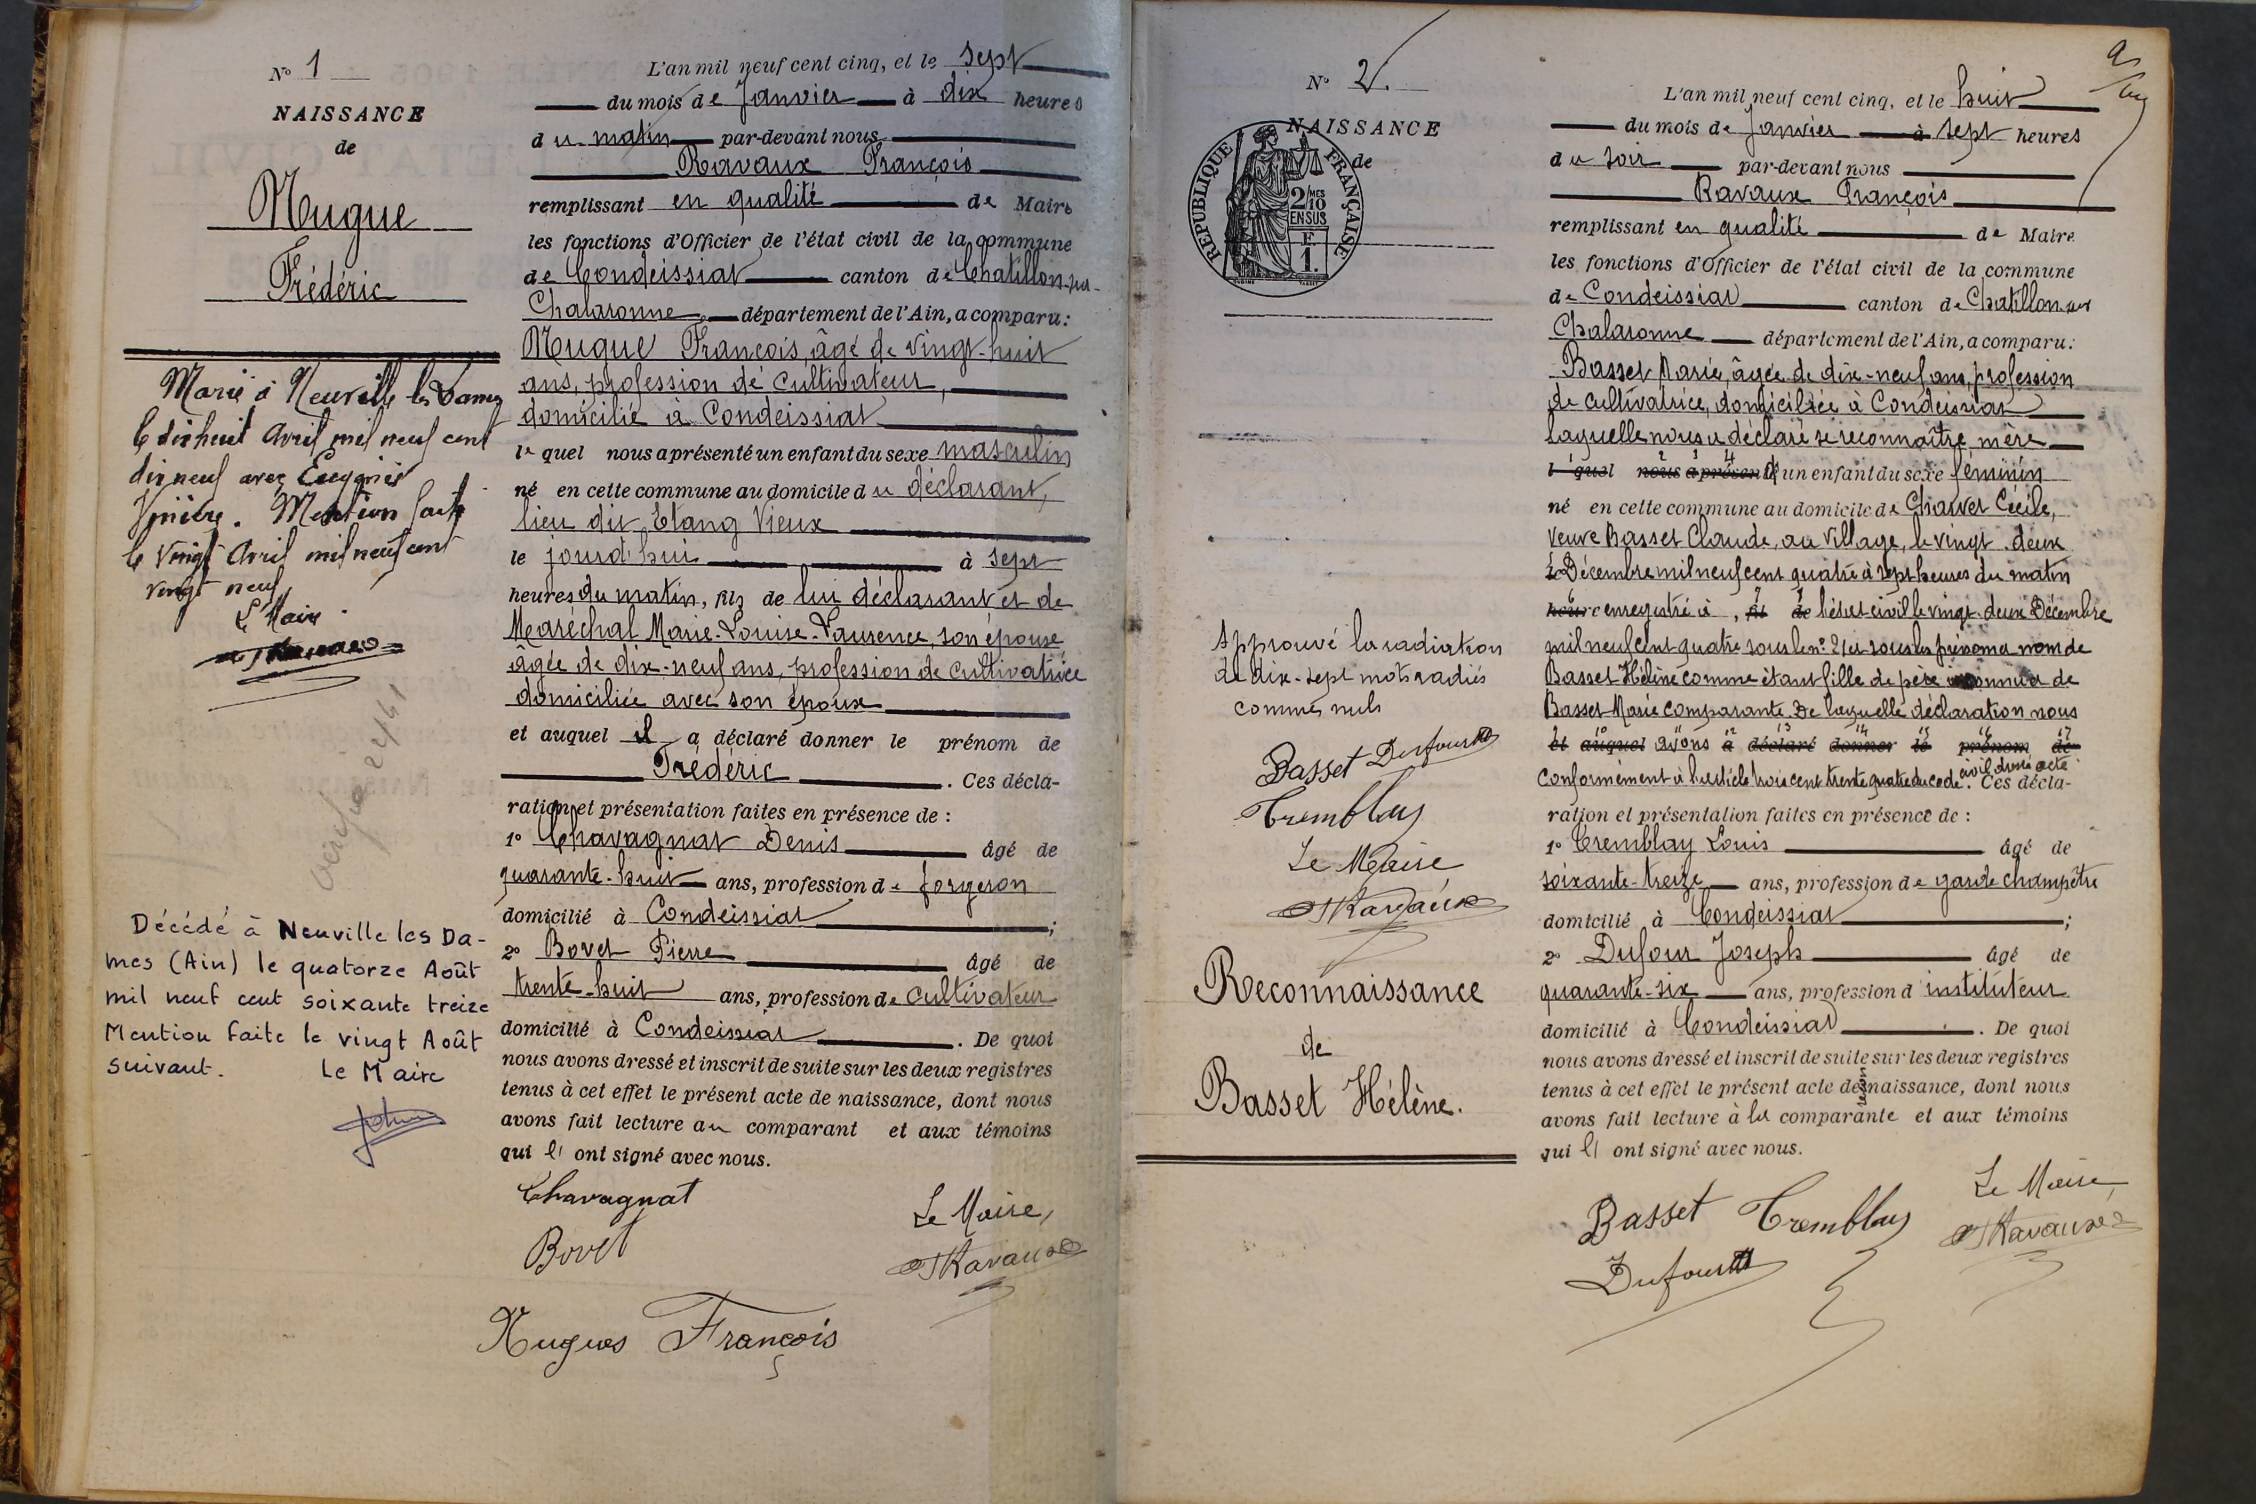 N° 1
NAISSANCE
de
Mugue
Frédéric
Marié à Neuville les Dames
le dix huit Avril mil neuf cent
dix neuf avec
Mention faite
le vingt Avril mil neuf cent
vingt neuf
Le Maire
Décédé à Neuville les Da-
mes (Ain) le quatorze Août
mil neuf cent soixante treize
Mention faite le vingt Août
suivant. Le Maire
L'an mil neuf cent cinq, et le sept
du mois de Janvier à dix heures
du matin par-devant nous
Ravaux François
remplissant en qualité de Maire
les fonctions d'Officier de l'état civil de la commune
de Condeissiat canton de Chatillon-sur-
Chalaronne, département de l'Ain, a comparu :
Mugue François, âgé de vingt-huit
ans, profession de cultivateur,
domicilié à Condeissiat
lequel nous a présenté un enfant du sexe masculin
né en cette commune au domicile du déclarant,
lieu dit Etang Vieux
le jourd'hui à sept
heures du matin, fils de lui déclarant et de
Maréchal Marie-Louise-Laurence, son épouse
âgée de dix-neuf ans, profession de cultivatrice
domiciliée avec son époux
et auquel il a déclaré donner le prénom de
Frédéric . Ces décla-
ration et présentation faites en présence de :
1° Chavagnat Denis âgé de
quarante-huit ans, profession de forgeron
domicilié à Condeissiat ;
2° Bovet Pierre âgé de
trente-huit ans, profession de cultivateur
domicilié à Condeissiat . De quoi
nous avons dressé et inscrit de suite sur les deux registres
tenus à cet effet le présent acte de naissance, dont nous
avons fait lecture au comparant et aux témoins
qui l' ont signé avec nous.
Chavagnat Le Maire,
Bovet Ravaux
Mugues François
N° 2
NAISSANCE
de
RÉPUBLIQUE FRANÇAISE
2/10 MES
EN SUS
F
1.
Approuvé la radiation
de dix-sept mots radiés
comme nuls
Basset Dufour
Tremblay
Le Maire
Ravaux
Reconnaissance
de
Basset Hélène.
L'an mil neuf cent cinq, et le huit
du mois de Janvier à sept heures
du soir par-devant nous
Ravaux François
remplissant en qualité de Maire
les fonctions d'Officier de l'état civil de la commune
de Condeissiat canton de Chatillon-sur
Chalaronne département de l'Ain, a comparu :
Basset Marie, âgée de dix-neuf ans, profession
de cultivatrice, domiciliée à Condeissiat
laquelle nous a déclaré se reconnaître mère
lequel nous a présenté d' un enfant du sexe féminin
né en cette commune au domicile de Charvet Cécile,
veuve Basset Claude, au village, le vingt deux
Décembre mil neuf cent quatre à sept heures du matin
heure enregistré à , fils de l'état civil le vingt-deux Décembre
mil neuf cent quatre sous le n° 21 et sous les prénom et nom de
Basset Hélène comme étant fille de père inconnu et de
Basset Marie comparante. De laquelle déclaration nous
et auquel avons a déclaré donner le prénom de
conformément à l'article trois cent trente quatre du code civil donné acte . Ces décla-
ration et présentation faites en présence de :
1° Tremblay Louis âgé de
soixante-treize ans, profession de garde champêtre
domicilié à Condeissiat ;
2° Dufour Joseph âgé de
quarante-six ans, profession d instituteur
domicilié à Condeissiat . De quoi
nous avons dressé et inscrit de suite sur les deux registres
tenus à cet effet le présent acte de naissance, dont nous
avons fait lecture à la comparante et aux témoins
qui l' ont signé avec nous.
Basset Tremblay Le Maire,
Dufour Ravaux